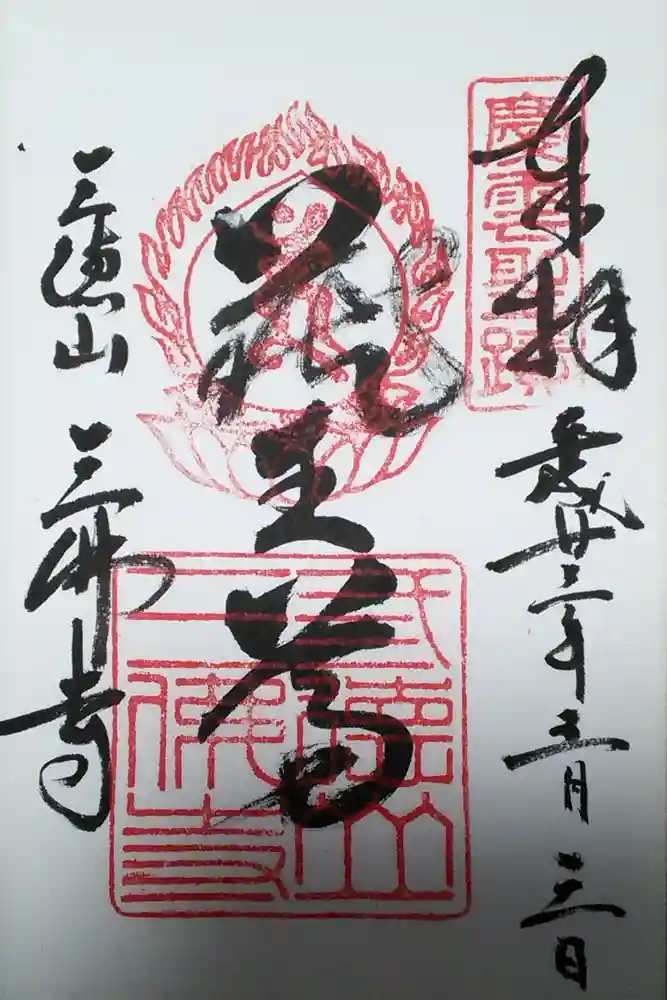 奉拝
平成廿三年五月三日
蔵王尊
三徳山
三佛寺
慶雲聖跡
弎徳山
三佛寺